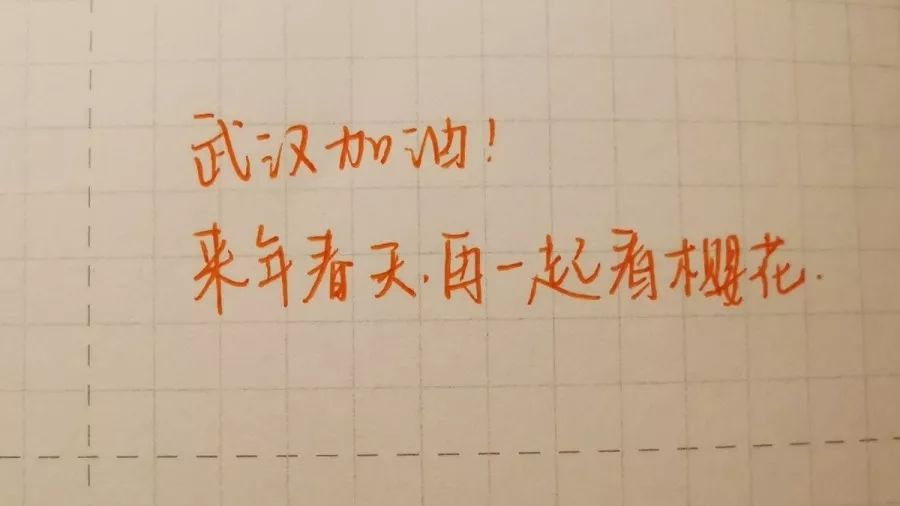 武汉加油!
来年春天.再一起看樱花.